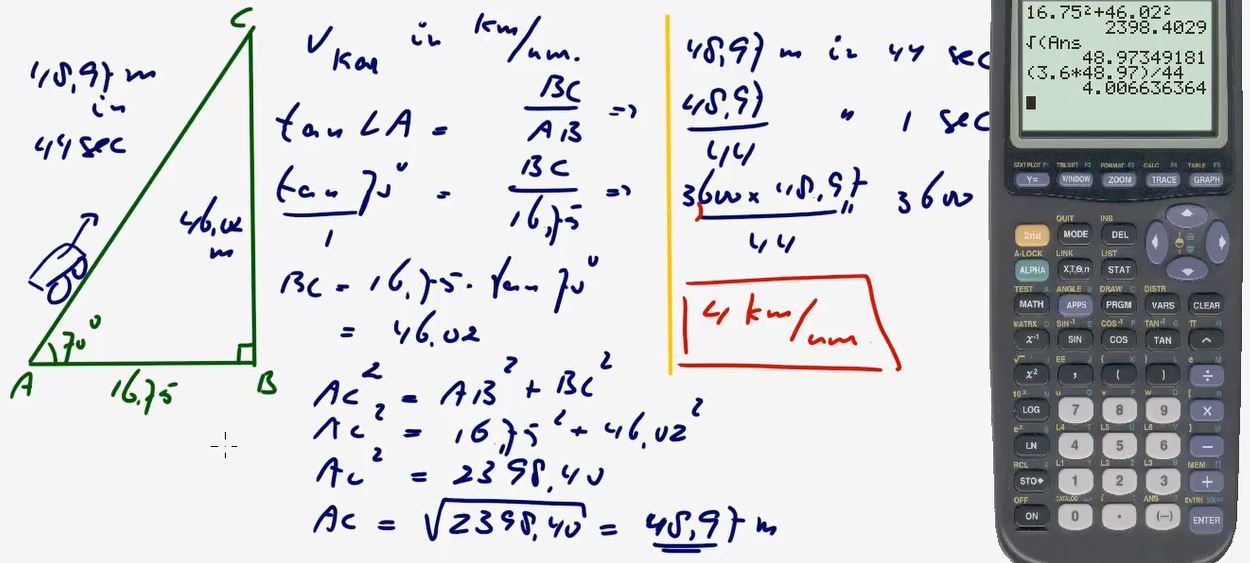 C
48,97 m
in
44 sec
46,02
m
70°
A
16,75
B
V Kar in km/uur.
tan ∠A = BC/AB =>
tan 70°/1 = BC/16,75 =>
BC = 16,75 . tan 70°
= 46,02
AC² = AB² + BC²
AC² = 16,75² + 46,02²
AC² = 2398,40
AC = √2398,40 = 48,97 m
48,97 m in 44 sec
48,97/44 " 1 sec
3600 x 48,97/44 " 3600
4 km/uur
16.75²+46.02²
2398.4029
√(Ans
48.97349181
(3.6*48.97)/44
4.006636364
STAT PLOT F1 TBLSET F2 FORMAT F3 CALC F4 TABLE F5
Y= WINDOW ZOOM TRACE GRAPH
QUIT INS
2nd MODE DEL
A-LOCK LINK LIST
ALPHA X,T,Θ,n STAT
TEST A ANGLE B DRAW C DISTR
MATH APPS PRGM VARS CLEAR
MATRX D SIN⁻¹ E COS⁻¹ F TAN⁻¹ G π H
x⁻¹ SIN COS TAN ^
√ I EE J { K } L e M
x² , ( ) ÷
10ˣ N u O v P w Q [ R
LOG 7 8 9 ×
eˣ S L4 T L5 U L6 V ] W
LN 4 5 6 −
RCL X L1 Y L2 Z L3 θ MEM "
STO▸ 1 2 3 +
OFF CATALOG i : ANS ? ENTRY SOLVE
ON 0 . (−) ENTER